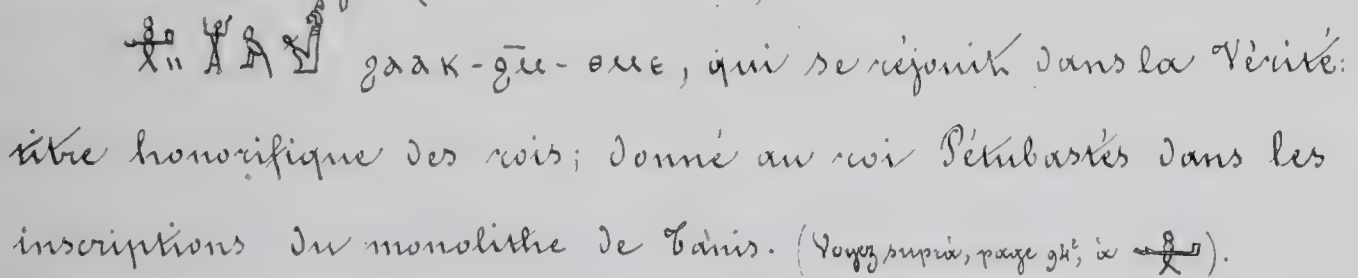 ϩⲁⲁⲕ-ϩⲙ̄-ⲑⲙⲉ, qui se réjouit dans la Vérité:
titre honorifique des rois; donné au roi Pétubastés dans les
inscriptions du monolithe de Tanis. (Voyez suprà, page 94², à ).